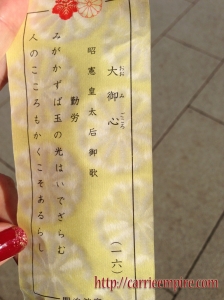 大御心 （一六）
昭憲皇太后御歌
勤労
みがかずば玉の光はいでざらむ
人のこころもかくこそあるらし